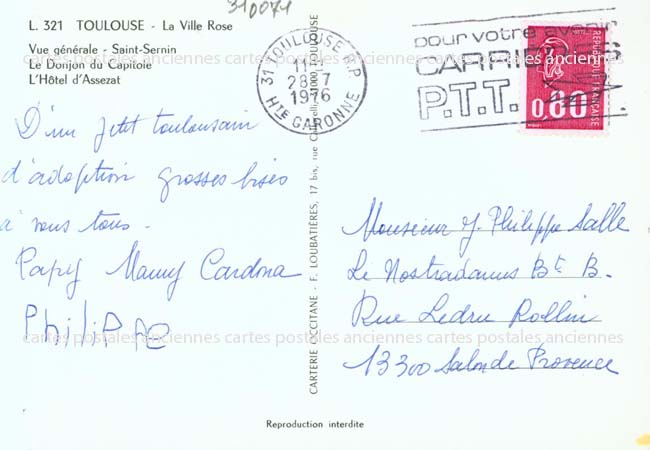 310071
L. 321 TOULOUSE - La Ville Rose
Vue générale - Saint-Sernin
Le Donjon du Capitole
L'Hôtel d'Assezat
31 TOULOUSE R.P
11H
28-7
1976
HTE GARONNE
pour votre avenir
CARRIERES
P.T.T.
REPUBLIQUE FRANÇAISE
0,80
cartes postales anciennes cartes postales anciennes cartes postales anciennes
D'un petit toulousain
d'adoption grosses bises
à vous tous.
Papy Mamy Cardona
PhiliPPe
CARTERIE OCCITANE - F. LOUBATIÈRES, 17 bis, rue 31000 TOULOUSE
Monsieur J. Philippe Salle
Le Nostradamus Bt B.
Rue Ledru Rollin
13300 Salon de Provence
cartes postales anciennes cartes postales anciennes cartes postales anciennes
Reproduction interdite